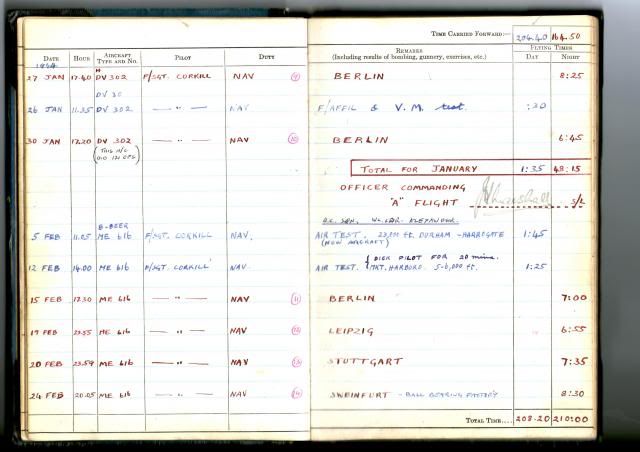 TIME CARRIED FORWARD:— 204.40 164.50
DATE HOUR AIRCRAFT TYPE AND NO. PILOT DUTY REMARKS (Including results of bombing, gunnery, exercises, etc.) FLYING TIMES DAY NIGHT
1944
27 JAN 17.40 DV 302 F/SGT. CORKILL NAV 9 BERLIN 8:25
DV 30
26 JAN 11.35 DV 302 — " — NAV F/AFFIL & V.M. test. :30
30 JAN 17.20 DV 302 — " — NAV 10 BERLIN 6:45
(THIS A/C DID 121 OPS)
TOTAL FOR JANUARY 1:35 48:15
OFFICER COMMANDING
"A" FLIGHT S/L
B-BEER
5 FEB 11.05 ME 616 F/SGT. CORKILL NAV. AIR TEST. DURHAM - HARROGATE 1:45
(NEW AIRCRAFT)
12 FEB 14.00 ME 616 F/SGT. CORKILL NAV AIR TEST. { DICK PILOT FOR 20 mins. MKT. HARBORO. 5-6,000 ft. 1:25
15 FEB 17.30 ME 616 — " — NAV 11 BERLIN 7:00
19 FEB 23.55 ME 616 — " — NAV 12 LEIPZIG 6:55
20 FEB 23.59 ME 616 — " — NAV 13 STUTTGART 7:35
24 FEB 20.05 ME 616 — " — NAV 14 SWEINFURT - BALL BEARING FACTORY 8:30
TOTAL TIME.... 208.20 210:00